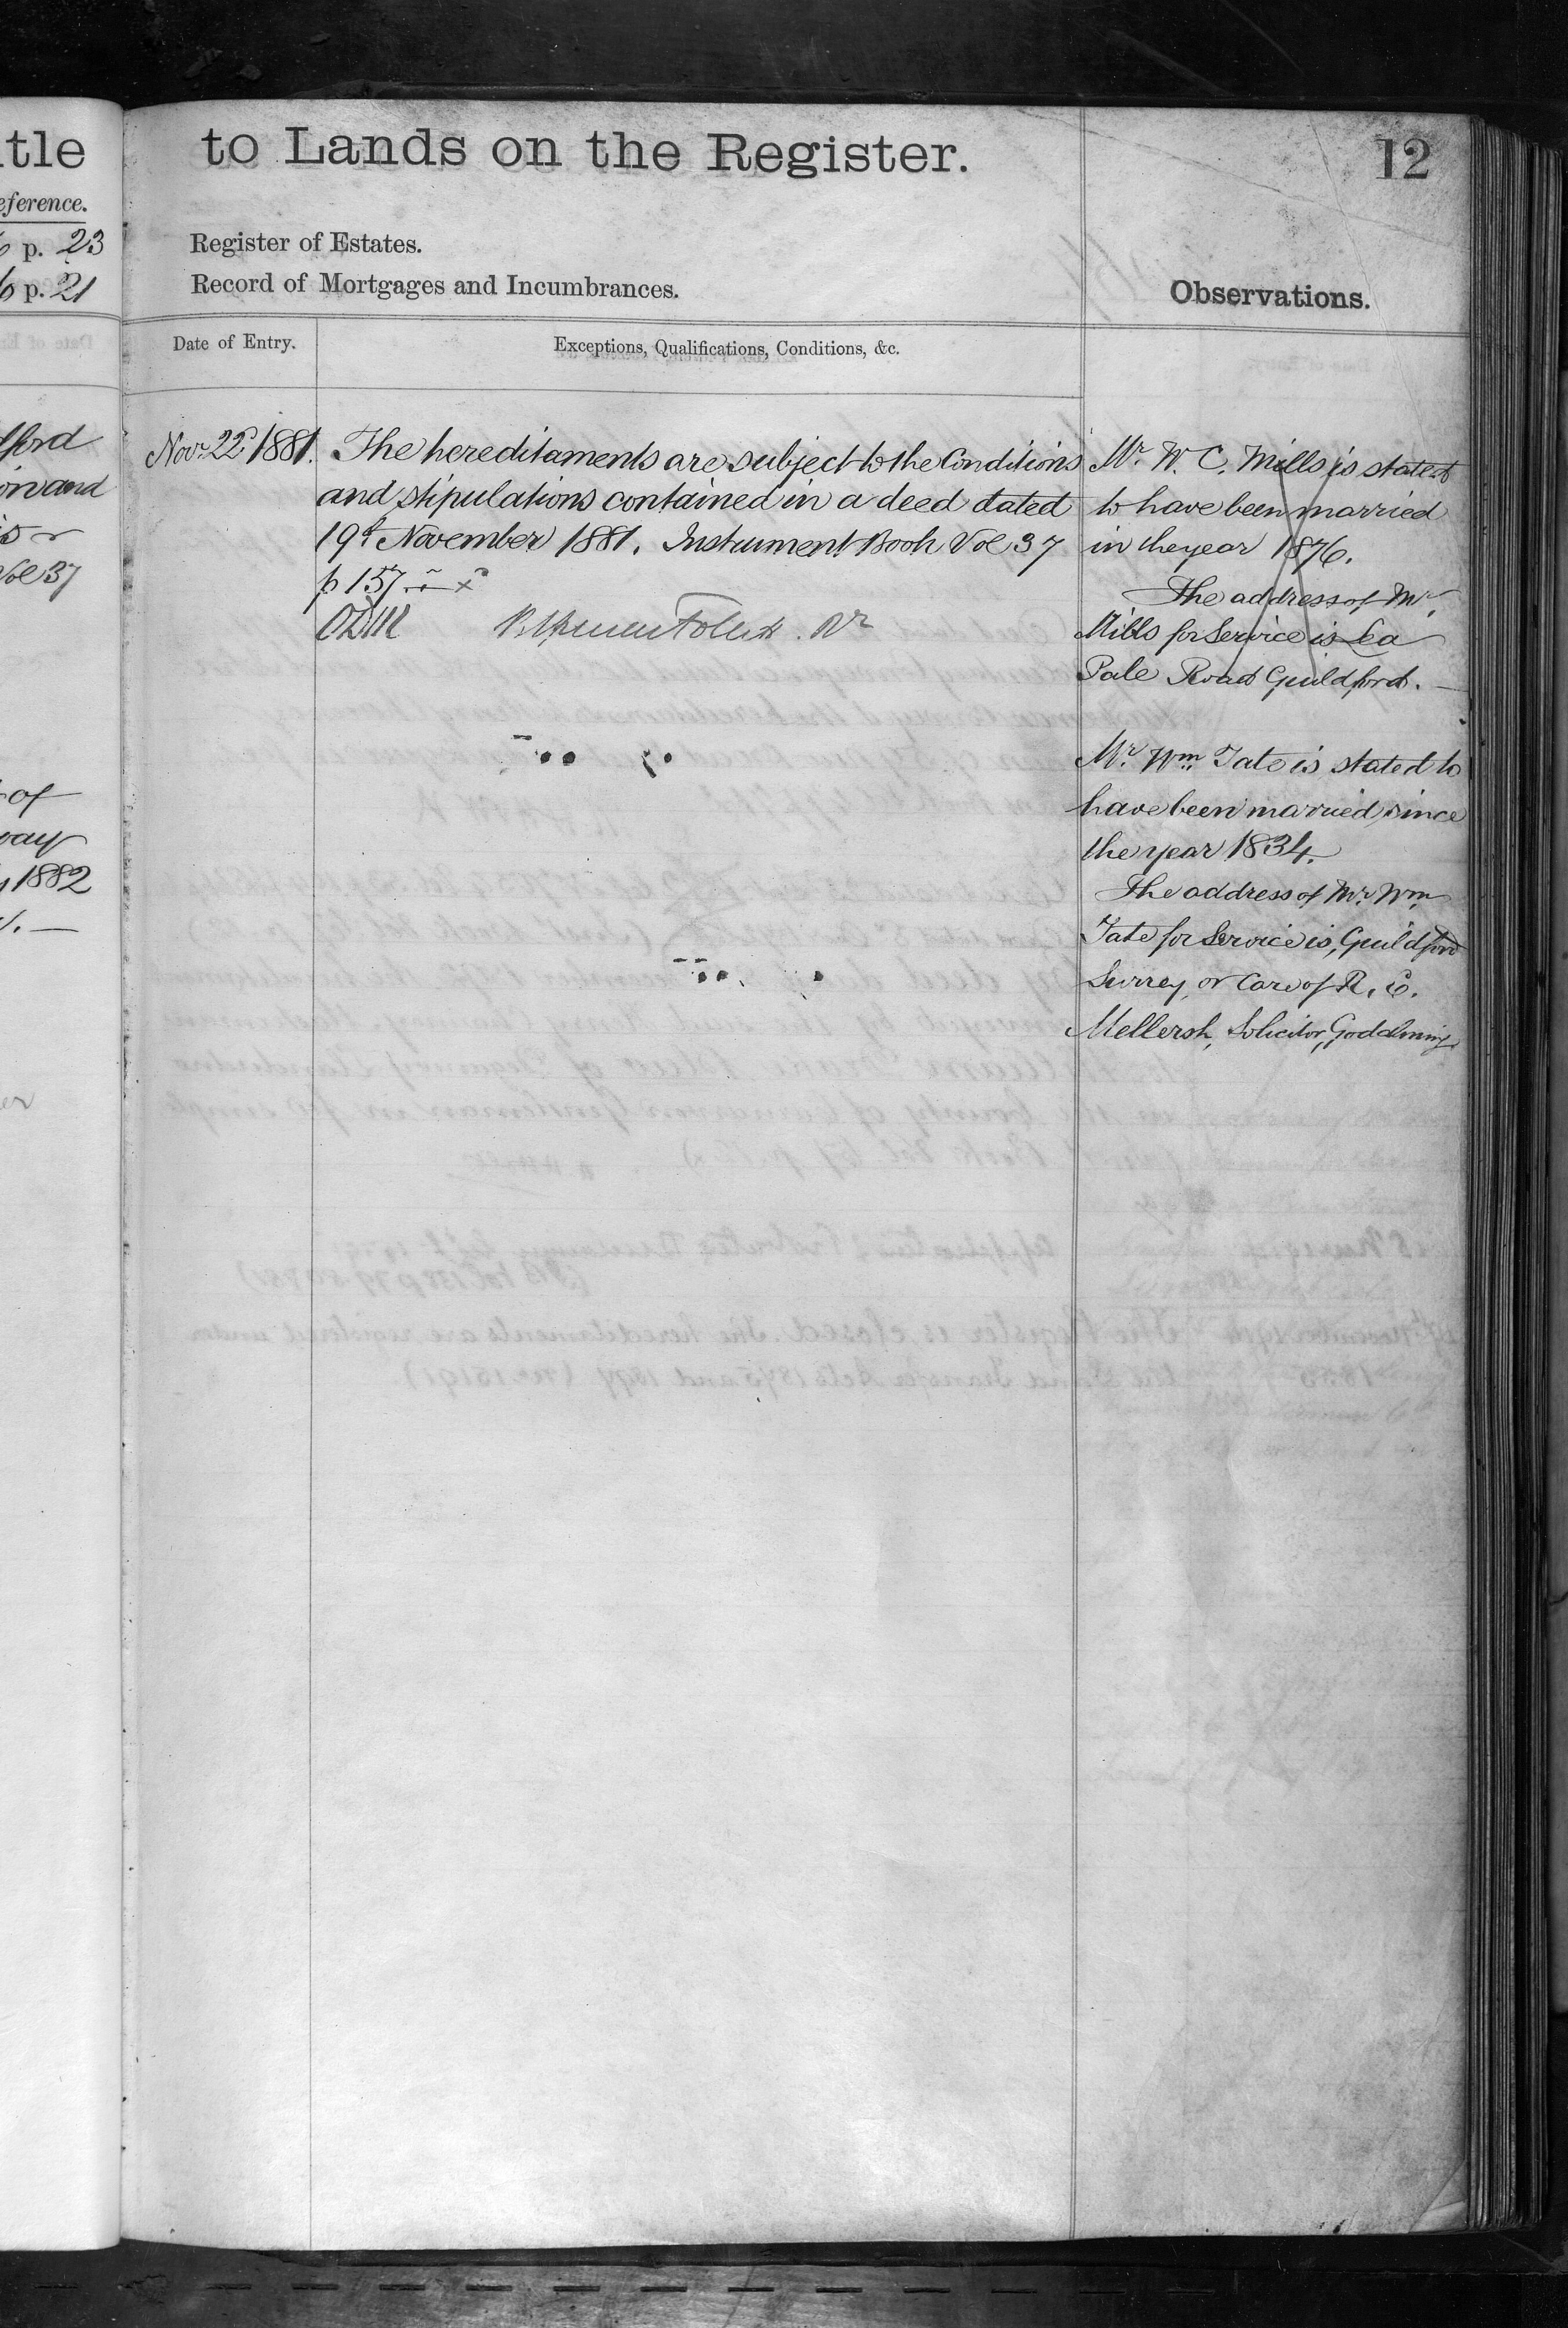 tle
eference.
p. 23
p. 21
to Lands on the Register.
12
Register of Estates.
Record of Mortgages and Incumbrances.
Observations.
Date of Entry.
Exceptions, Qualifications, Conditions, &c.
Novr 22d 1881.
The hereditaments are subject to the Conditions
and stipulations contained in a deed dated
19th November 1881. Instrument Book Vol 37
p 157
Mr. W. C. Mills is stated
to have been married
in the year 1876.
The address of Mr.
Mills for Service is Lea
Pale Road Guildford.
Mr. Wm. Tate is stated to
have been married since
the year 1834.
The address of Mr. Wm.
Tate for Service is, Guildford
Surrey, or Care of R. E.
Mellersh, Solicitor, Godalming.
dford
and
Vol 37
of
way
1882